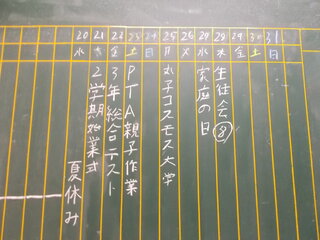 20 21 22 23 24 25 26 27 28 29 30 31
水 木 金 土 日 月 火 水 木 金 土 日
夏休み
2学期始業式
3年総合テスト
PTA親子作業
丸子コスモス大学
家庭の日
生徒会⑧